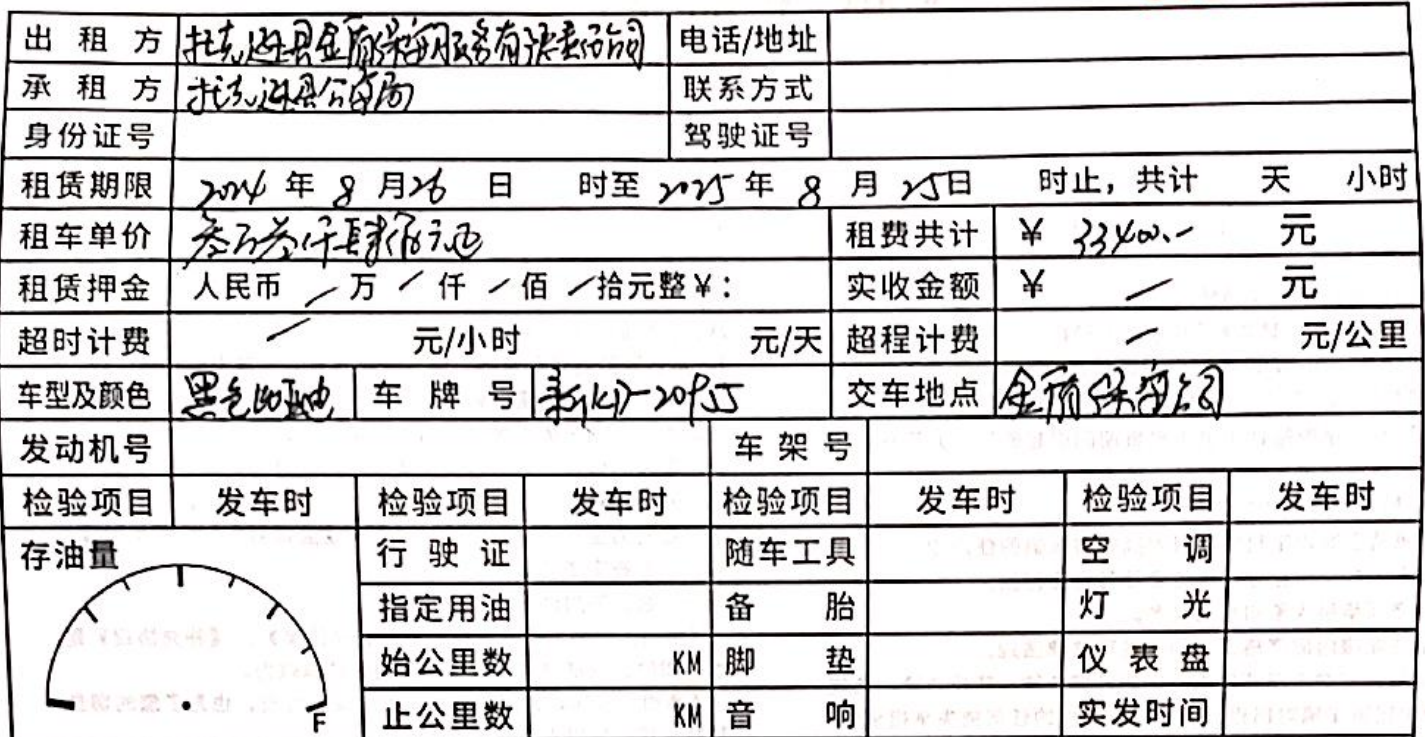 出租方 托克逊县金盾保安服务有限责任公司 电话/地址
承租方 托克逊县公安局 联系方式
身份证号 驾驶证号
租赁期限 2024 年 8 月 26 日 时至 2025 年 8 月 25 日 时止，共计 天 小时
租车单价 叁万叁仟肆佰元 租费共计 ¥ 33400.- 元
租赁押金 人民币 / 万 / 仟 / 佰 / 拾元整¥： 实收金额 ¥ / 元
超时计费 / 元/小时 元/天 超程计费 / 元/公里
车型及颜色 黑色比亚迪 车牌号 交车地点 金盾保安公司
发动机号 车架号
检验项目 发车时 检验项目 发车时 检验项目 发车时 检验项目 发车时
存油量 行驶证 随车工具 空调
指定用油 备胎 灯光
始公里数 KM 脚垫 仪表盘
F 止公里数 KM 音响 实发时间